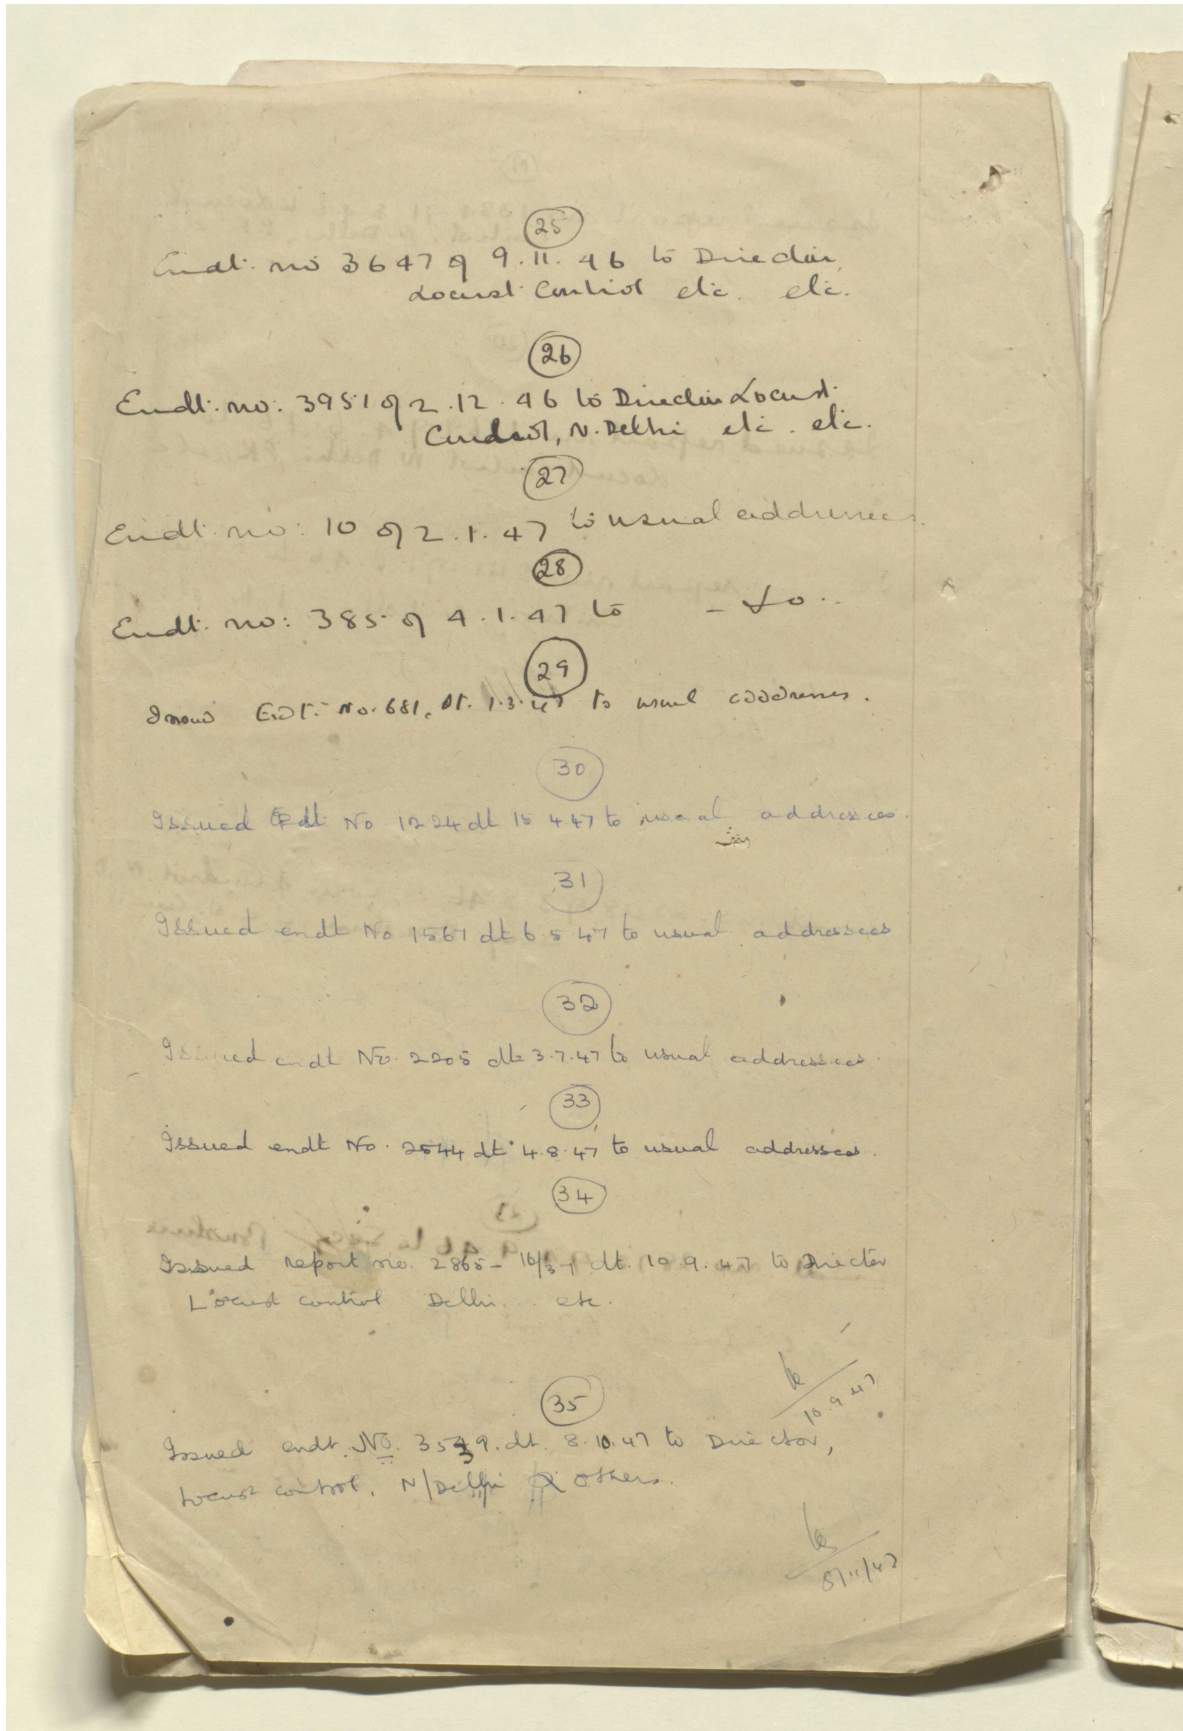 25
Endt. no 3647 of 9.11.46 to Director,
Locust Control etc. etc.
26
Endt. no: 3951 of 2.12.46 to Director Locust
Control, N. Delhi etc. etc.
27
Endt. no: 10 of 2.1.47 to usual addressees.
28
Endt. no: 385 of 4.1.47 to - do -
29
Issued Endt. No. 681, Dt. 1.3.47 to usual addresses.
30
Issued Endt No 1224 dt 15 4 47 to usual addressees.
31
Issued endt No 1567 dt 6 5 47 to usual addressees
32
Issued endt No. 2205 dt 3.7.47 to usual addressees.
33
Issued endt No. 2544 dt. 4.8.47 to usual addressees.
34
Issued report no. 2865- dt. 10.9.47 to Director
Locust control Delhi... etc.
10.9.47
35
Issued endt. No. 3539. dt. 8.10.47 to Director,
Locust control, N/Delhi & others.
8/11/47